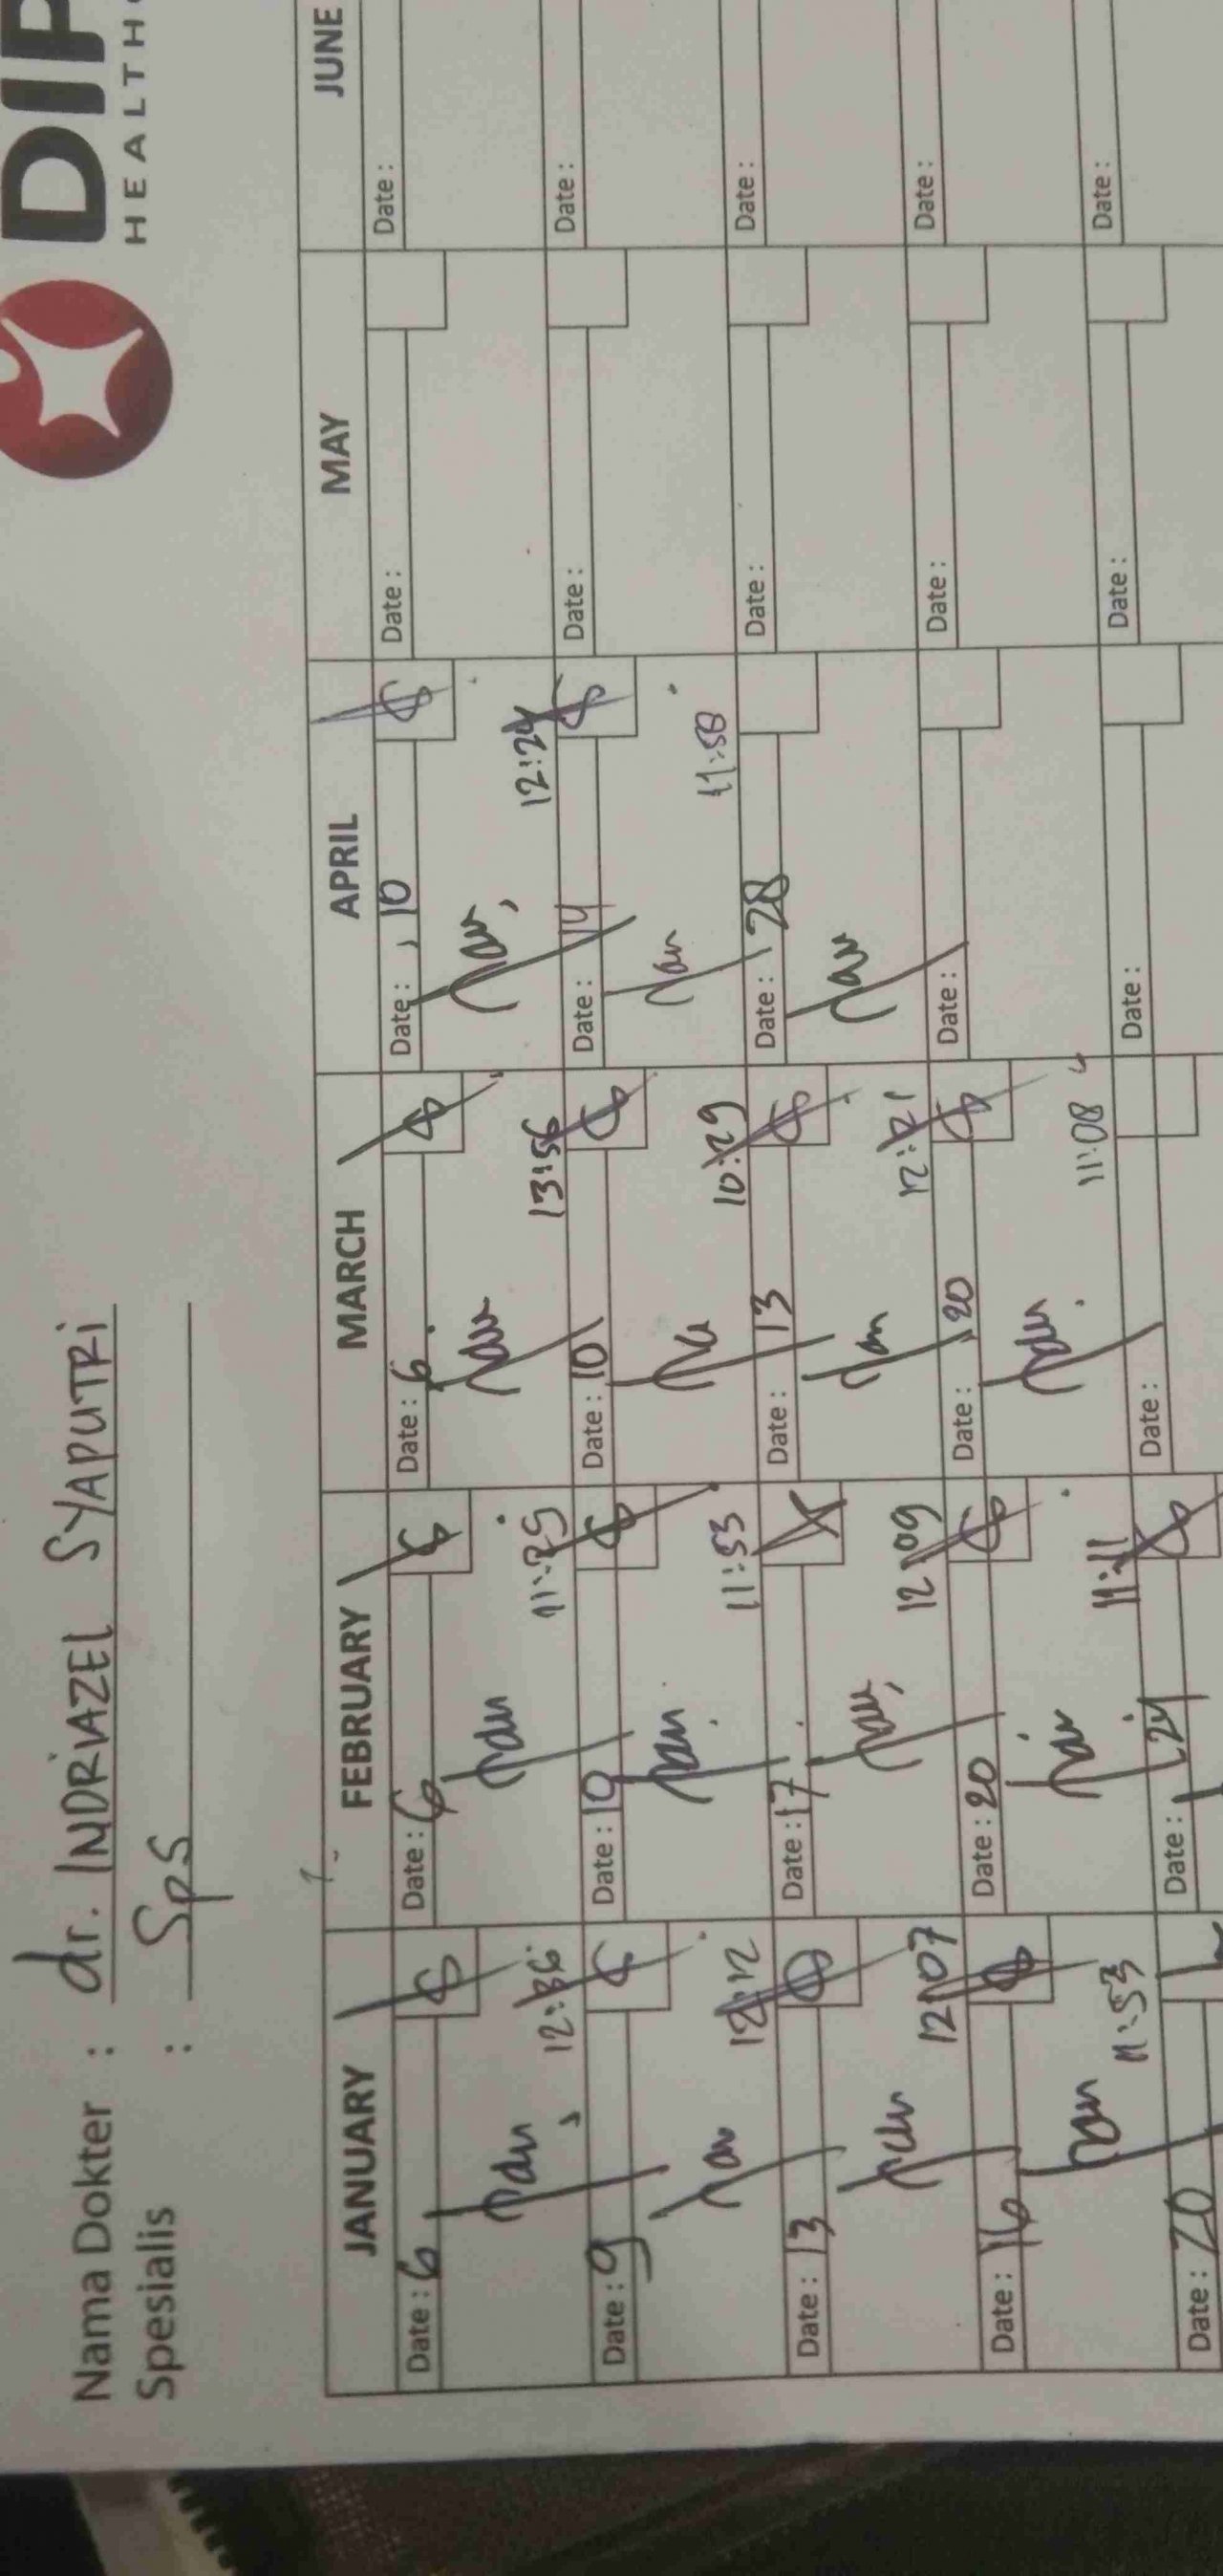 DIP
HEALTHC
Nama Dokter : dr. INDRIAZEL SYAPUTRI
Spesialis : SpS
JANUARY FEBRUARY MARCH APRIL MAY JUNE
Date : 6 Date : 6 Date : 6 Date : 10 Date : Date :
12:36 11:25 13:56 12:24
Date : 9 Date : 10 Date : 10 Date : 14 Date : Date :
12:12 11:53 10:29 11:58
Date : 13 Date : 17 Date : 13 Date : 28 Date : Date :
12:07 12:09 12:21
Date : 16 Date : 20 Date : 20 Date : Date : Date :
11:53 11:11 11:08
Date : 20 Date : 24 Date : Date : Date : Date :